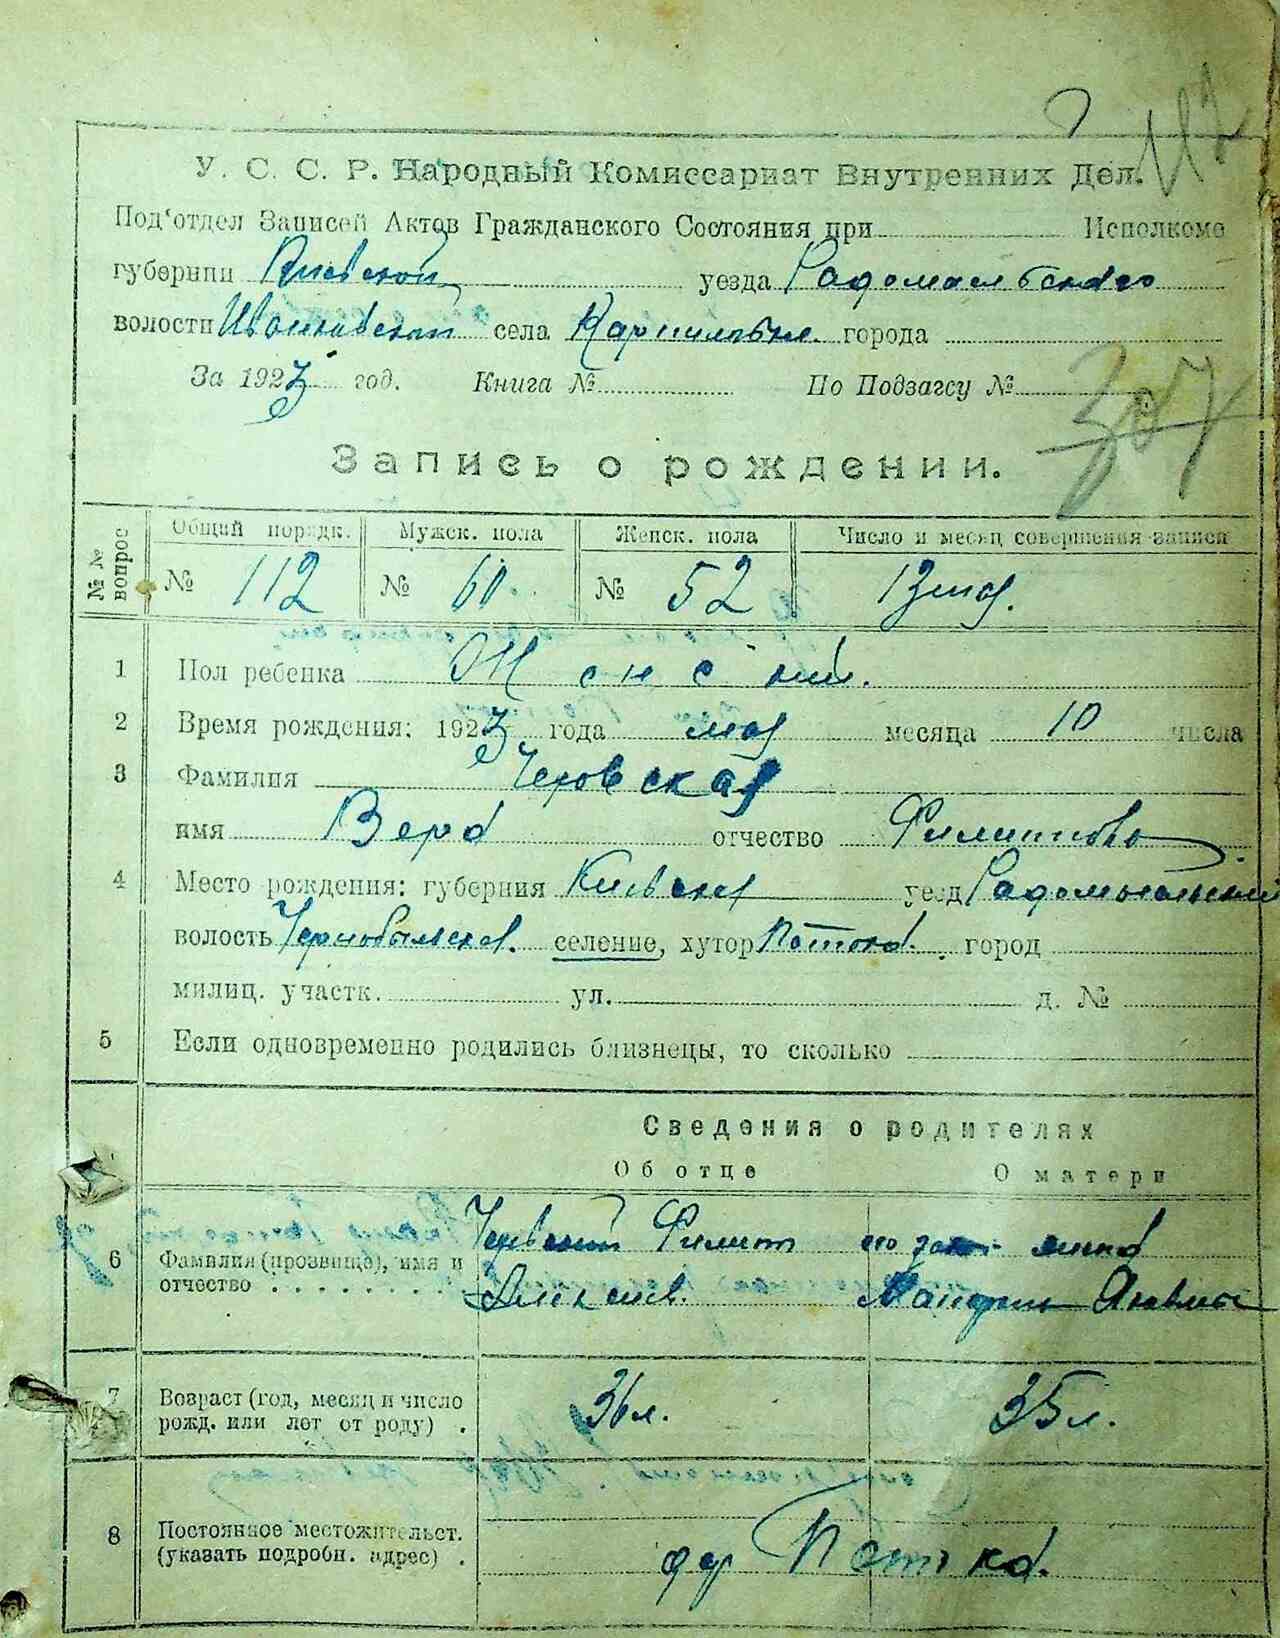 112
У. С. С. Р. Народный Комиссариат Внутренних Дел.
Под'отдел Записей Актов Гражданского Состояния при Исполкоме
губернии Киевской уезда Радомысльского
волости Иванковской села города
За 1923 год. Книга № По Подзагсу №
307
Запись о рождении.
№№ вопрос Общий порядк. Мужск. пола Женск. пола Число и месяц совершения записи
№ 112 № 60 № 52 13 мая.
1 Пол ребенка Женский.
2 Время рождения: 1923 года мая месяца 10 числа
3 Фамилия Червская
имя Вера отчество Филиппова
4 Место рождения: губерния Киевская уезд Радомысльский
волость Чернобыльская. селение, хутор город
милиц. участк. ул. д. №
5 Если одновременно родились близнецы, то сколько
Сведения о родителях
Об отце О матери
6 Фамилия (прозвище), имя и отчество
Филипп его жена
7 Возраст (год, месяц и число рожд. или лет от роду) . 36 л. 35 л.
8 Постоянное местожительст. (указать подробн. адрес) .